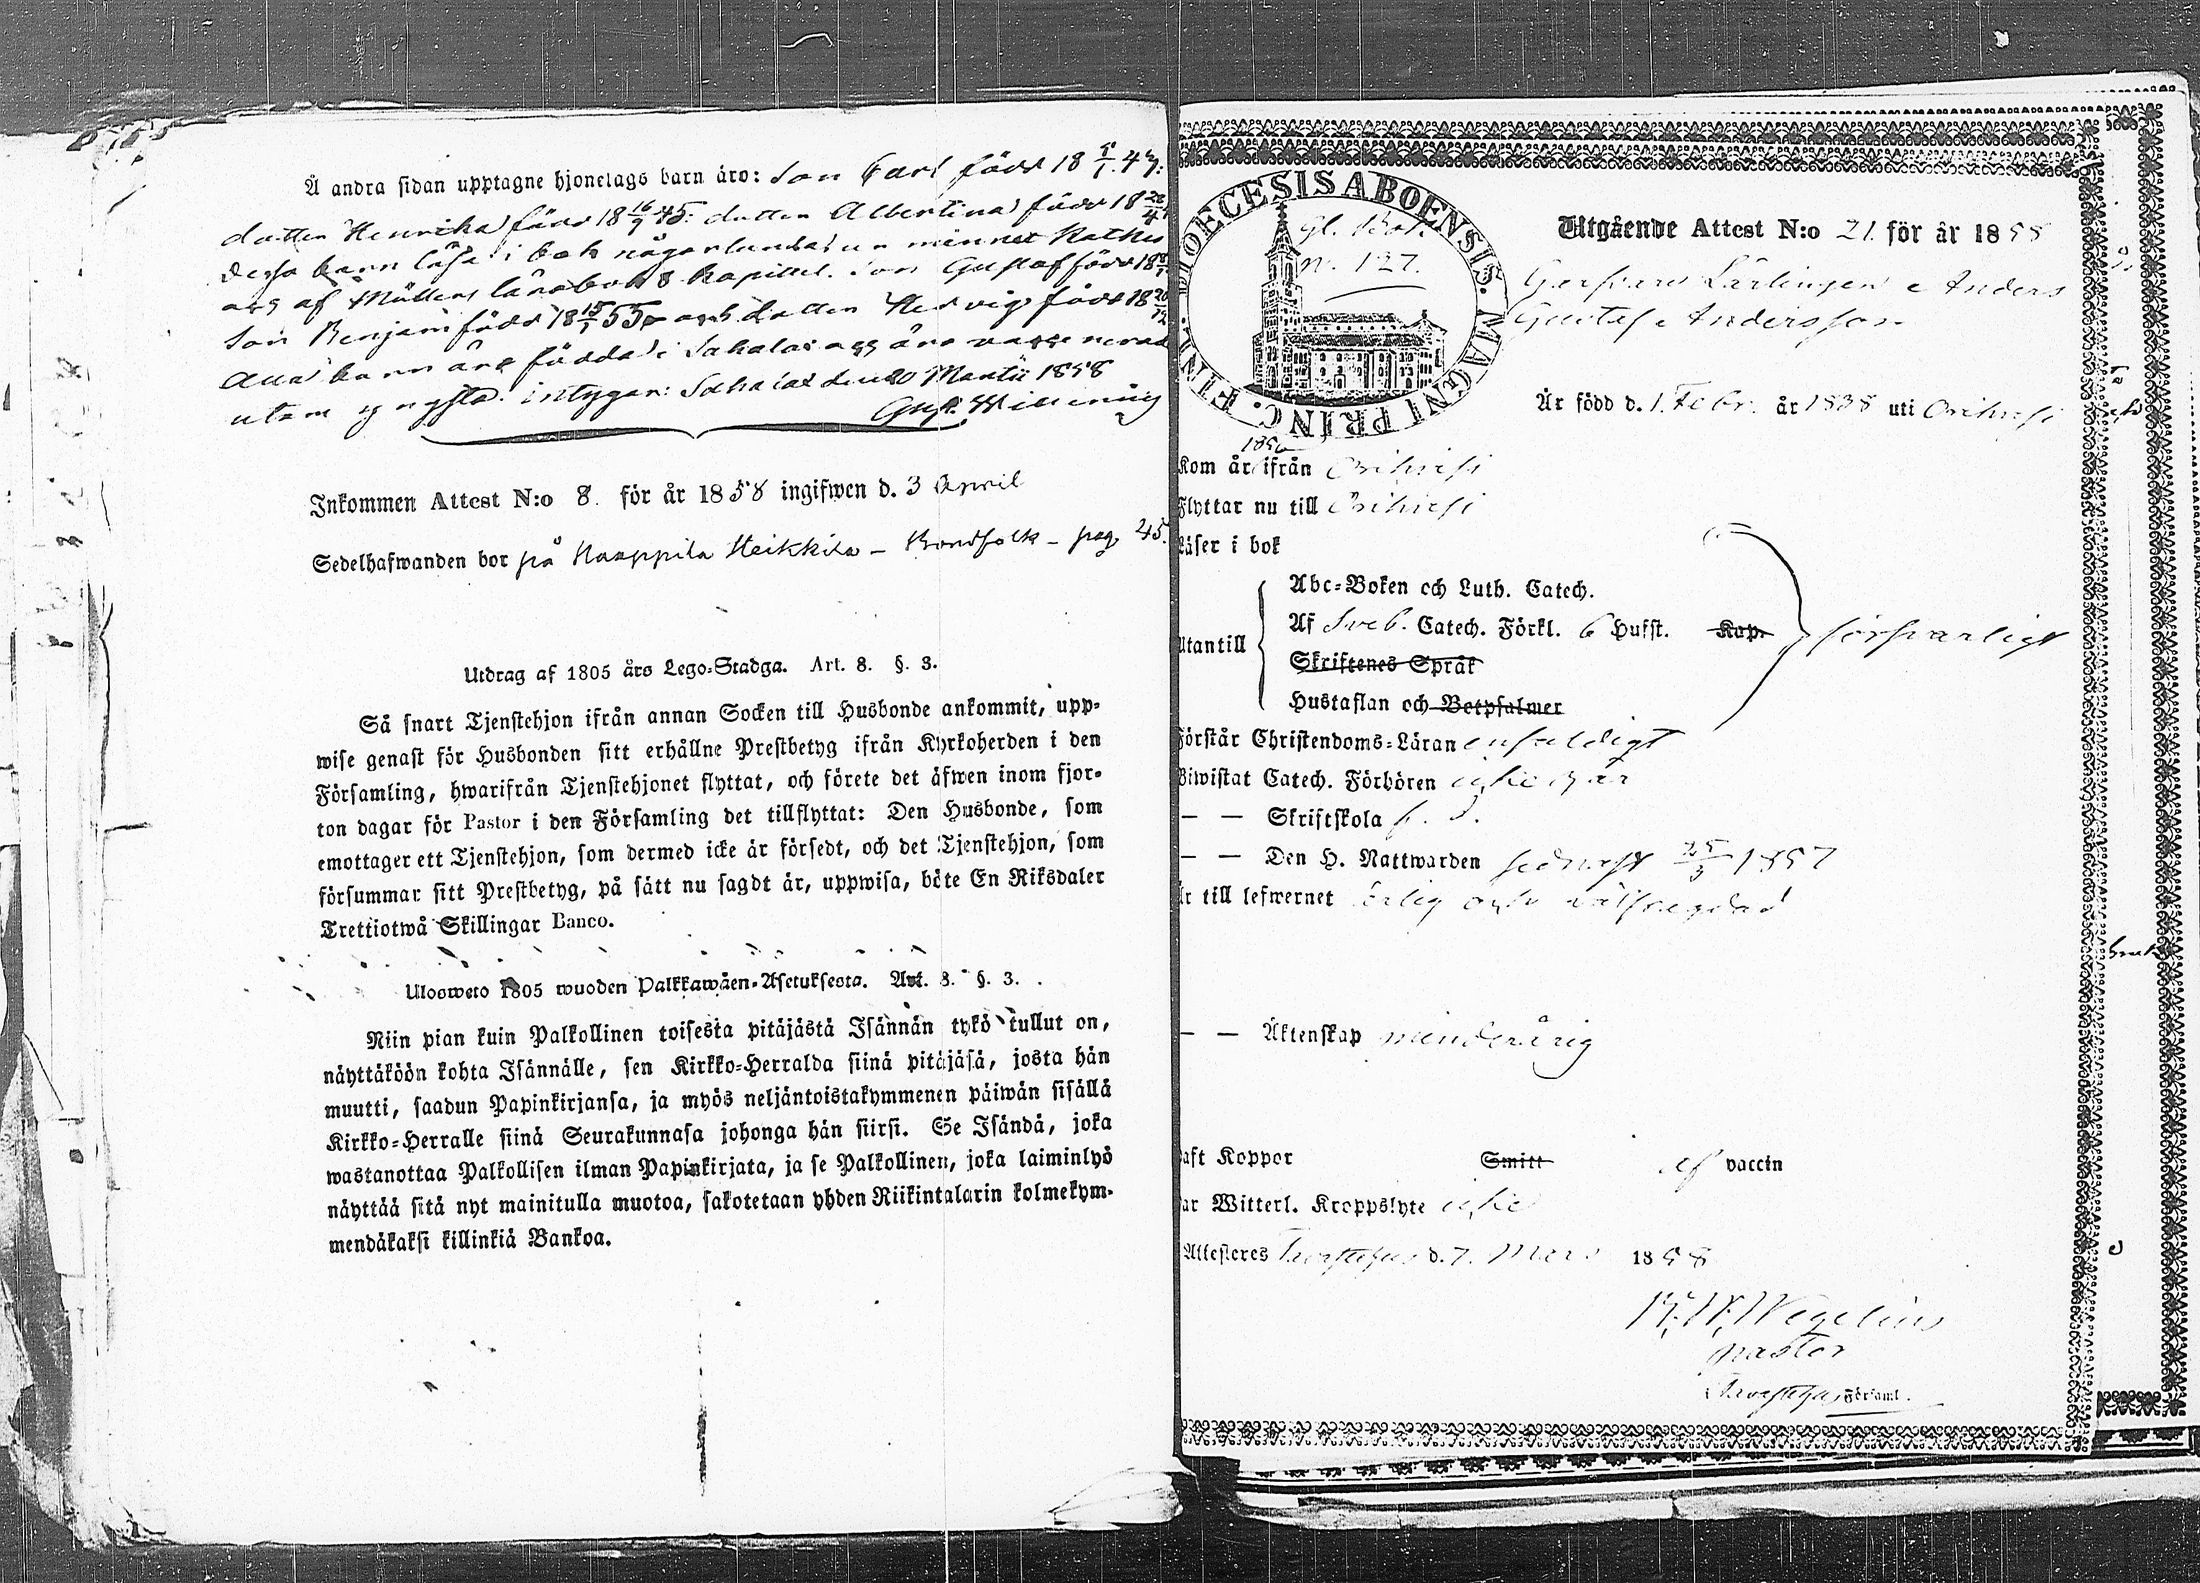 Å andra sidan upptagne hjonelags barn äro: Son Carl född 18 5/1 47:
dottren Henrika född 18 16/9 45: dottren Albertina född 18
Dessa barn läsa i bok någorlunda, ur minnet Kathes
och af Möllers lärobok 8 Kapittel. Son Gustaf född 18
Son Benjam född 18 15/1 55 och dottren Hedvig född 18
Alla barn äro födda i Sahalax och äro vaccinerad
utom yngsta. intygar: Sahalax den 20 Martii 1858
Gust.
Inkommen Attest N:o 8. för år 1858 ingifwen d. 3 April
Sedelhafwanden bor på Haappila Heikkilä – Bondfolk – pag. 45.
Utdrag af 1805 års Lego-Stadga. Art. 8. §. 3.
Så snart Tjenstehjon ifrån annan Socken till Husbonde ankommit, upp-
wise genast för Husbonden sitt erhållne Prestbetyg ifrån Kyrkoherden i den
Församling, hwarifrån Tjenstehjonet flyttat, och förete det äfwen inom fjor-
ton dagar för Pastor i den Församling det tillflyttat: Den Husbonde, som
emottager ett Tjenstehjon, som dermed icke är försedt, och det Tjenstehjon, som
försummar sitt Prestbetyg, på sätt nu sagdt är, uppwisa, böte En Riksdaler
Trettiotwå Skillingar Banco.
Ulosweto 1805 wuoden Palkkawäen-Asetuksesta. Art. 8. §. 3.
Niin pian kuin Palkollinen toisesta pitäjästä Isännän tykö tullut on,
näyttäköön kohta Isännälle, sen Kirkko-Herralda siinä pitäjäsä, josta hän
muutti, saadun Papinkirjansa, ja myös neljäntoistakymmenen päiwän sisällä
Kirkko-Herralle siinä Seurakunnasa johonga hän siirsi. Se Isändä, joka
wastanottaa Palkollisen ilman Papinkirjata, ja se Palkollinen, joka laiminlyö
näyttää sitä nyt mainitulla muotoa, sakotetaan yhden Riikintalarin kolmekym-
mendäkaksi killinkiä Bankoa.
DIOECESIS ABOENSIS. MAGNI PRINC. FINL.
N. 127.
Utgående Attest N:o 21. för år 1858
Garfvare Lärlingen Anders
Gustaf Andersson
Är född d. 1. Febr. år 1838 uti Orihvesi
1856
Kom år ifrån Orihvesi
Flyttar nu till Orihvesi
Läser i bok
Abc-Boken och Luth. Catech.
Utantill
Af Sveb. Catech. Förkl. 6 Hufst. Kap. försvarligt
Skriftenes Språk
Hustaflan och Botpsalmer
Förstår Christendoms-Läran enfaldigt
Biwistat Catech. Förhören icke i år
— — Skriftskola
— — Den H. Nattwarden sednast 25/3 1857
Är till lefwernet ärlig och välfrejdad
— — Äktenskap minderårig
Haft Koppor Smitt af vaccin
Har Witterl. Kroppslyte icke
Attesteras Tavastehus d. 7. Mars 1858
Wegelius
pastor
Tavastehus Församl.